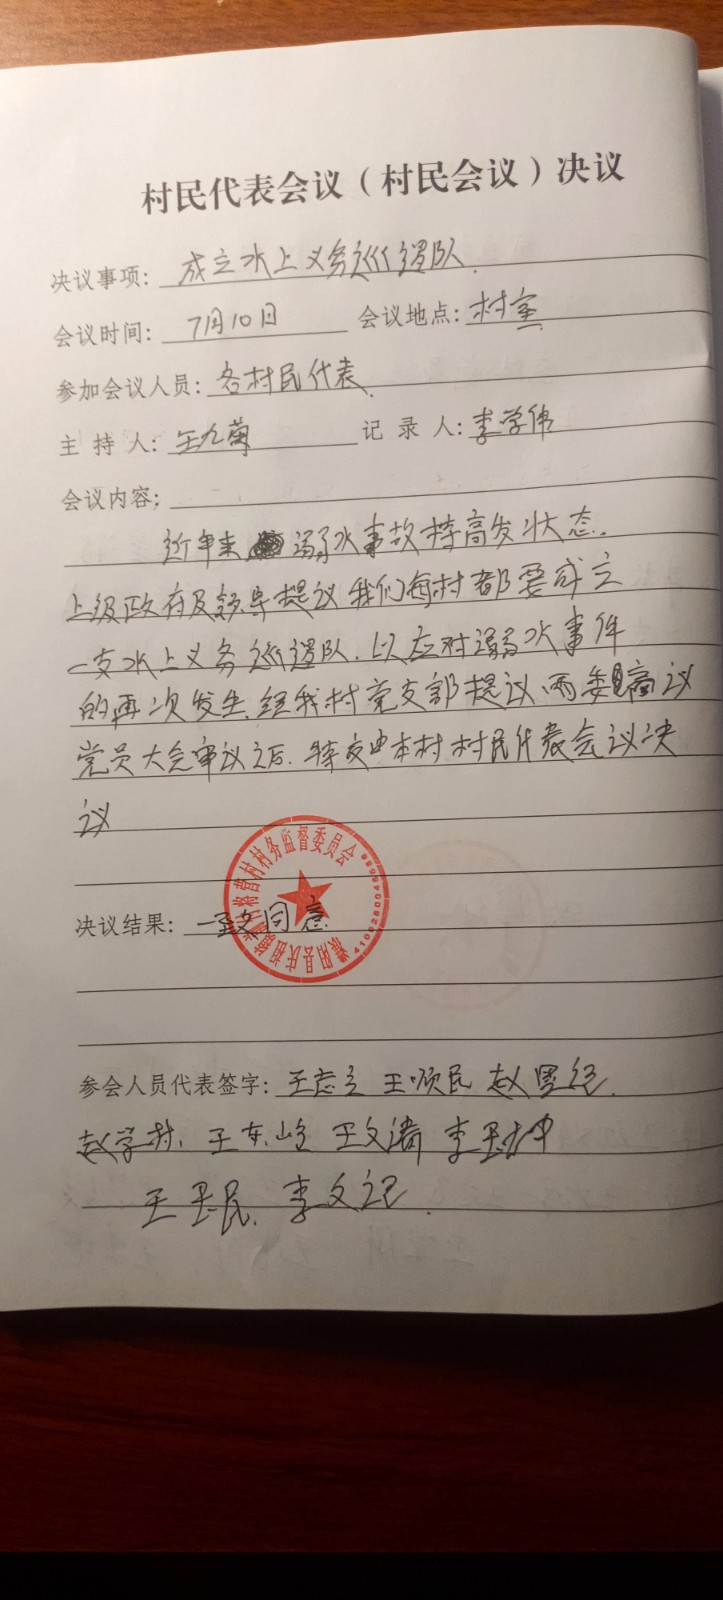 村民代表会议（村民会议）决议
决议事项: 成立水上义务巡逻队.
会议时间: 7月10日 会议地点: 村室
参加会议人员: 各村民代表.
主 持 人: 王九菊 记 录 人: 李学伟
会议内容;
近年来溺水事故持高发状态.
上级政府及领导提议我们每村都要成立
一支水上义务巡逻队. 以应对溺水事件
的再次发生. 经我村党支部提议、两委商议
党员大会审议之后. 特交由本村村民代表会议决
议
决议结果: 一致同意
村务监督委员会
参会人员代表签字: 王志立 王顺民
赵学林. 王东
王文清 李
王 民. 李文记.